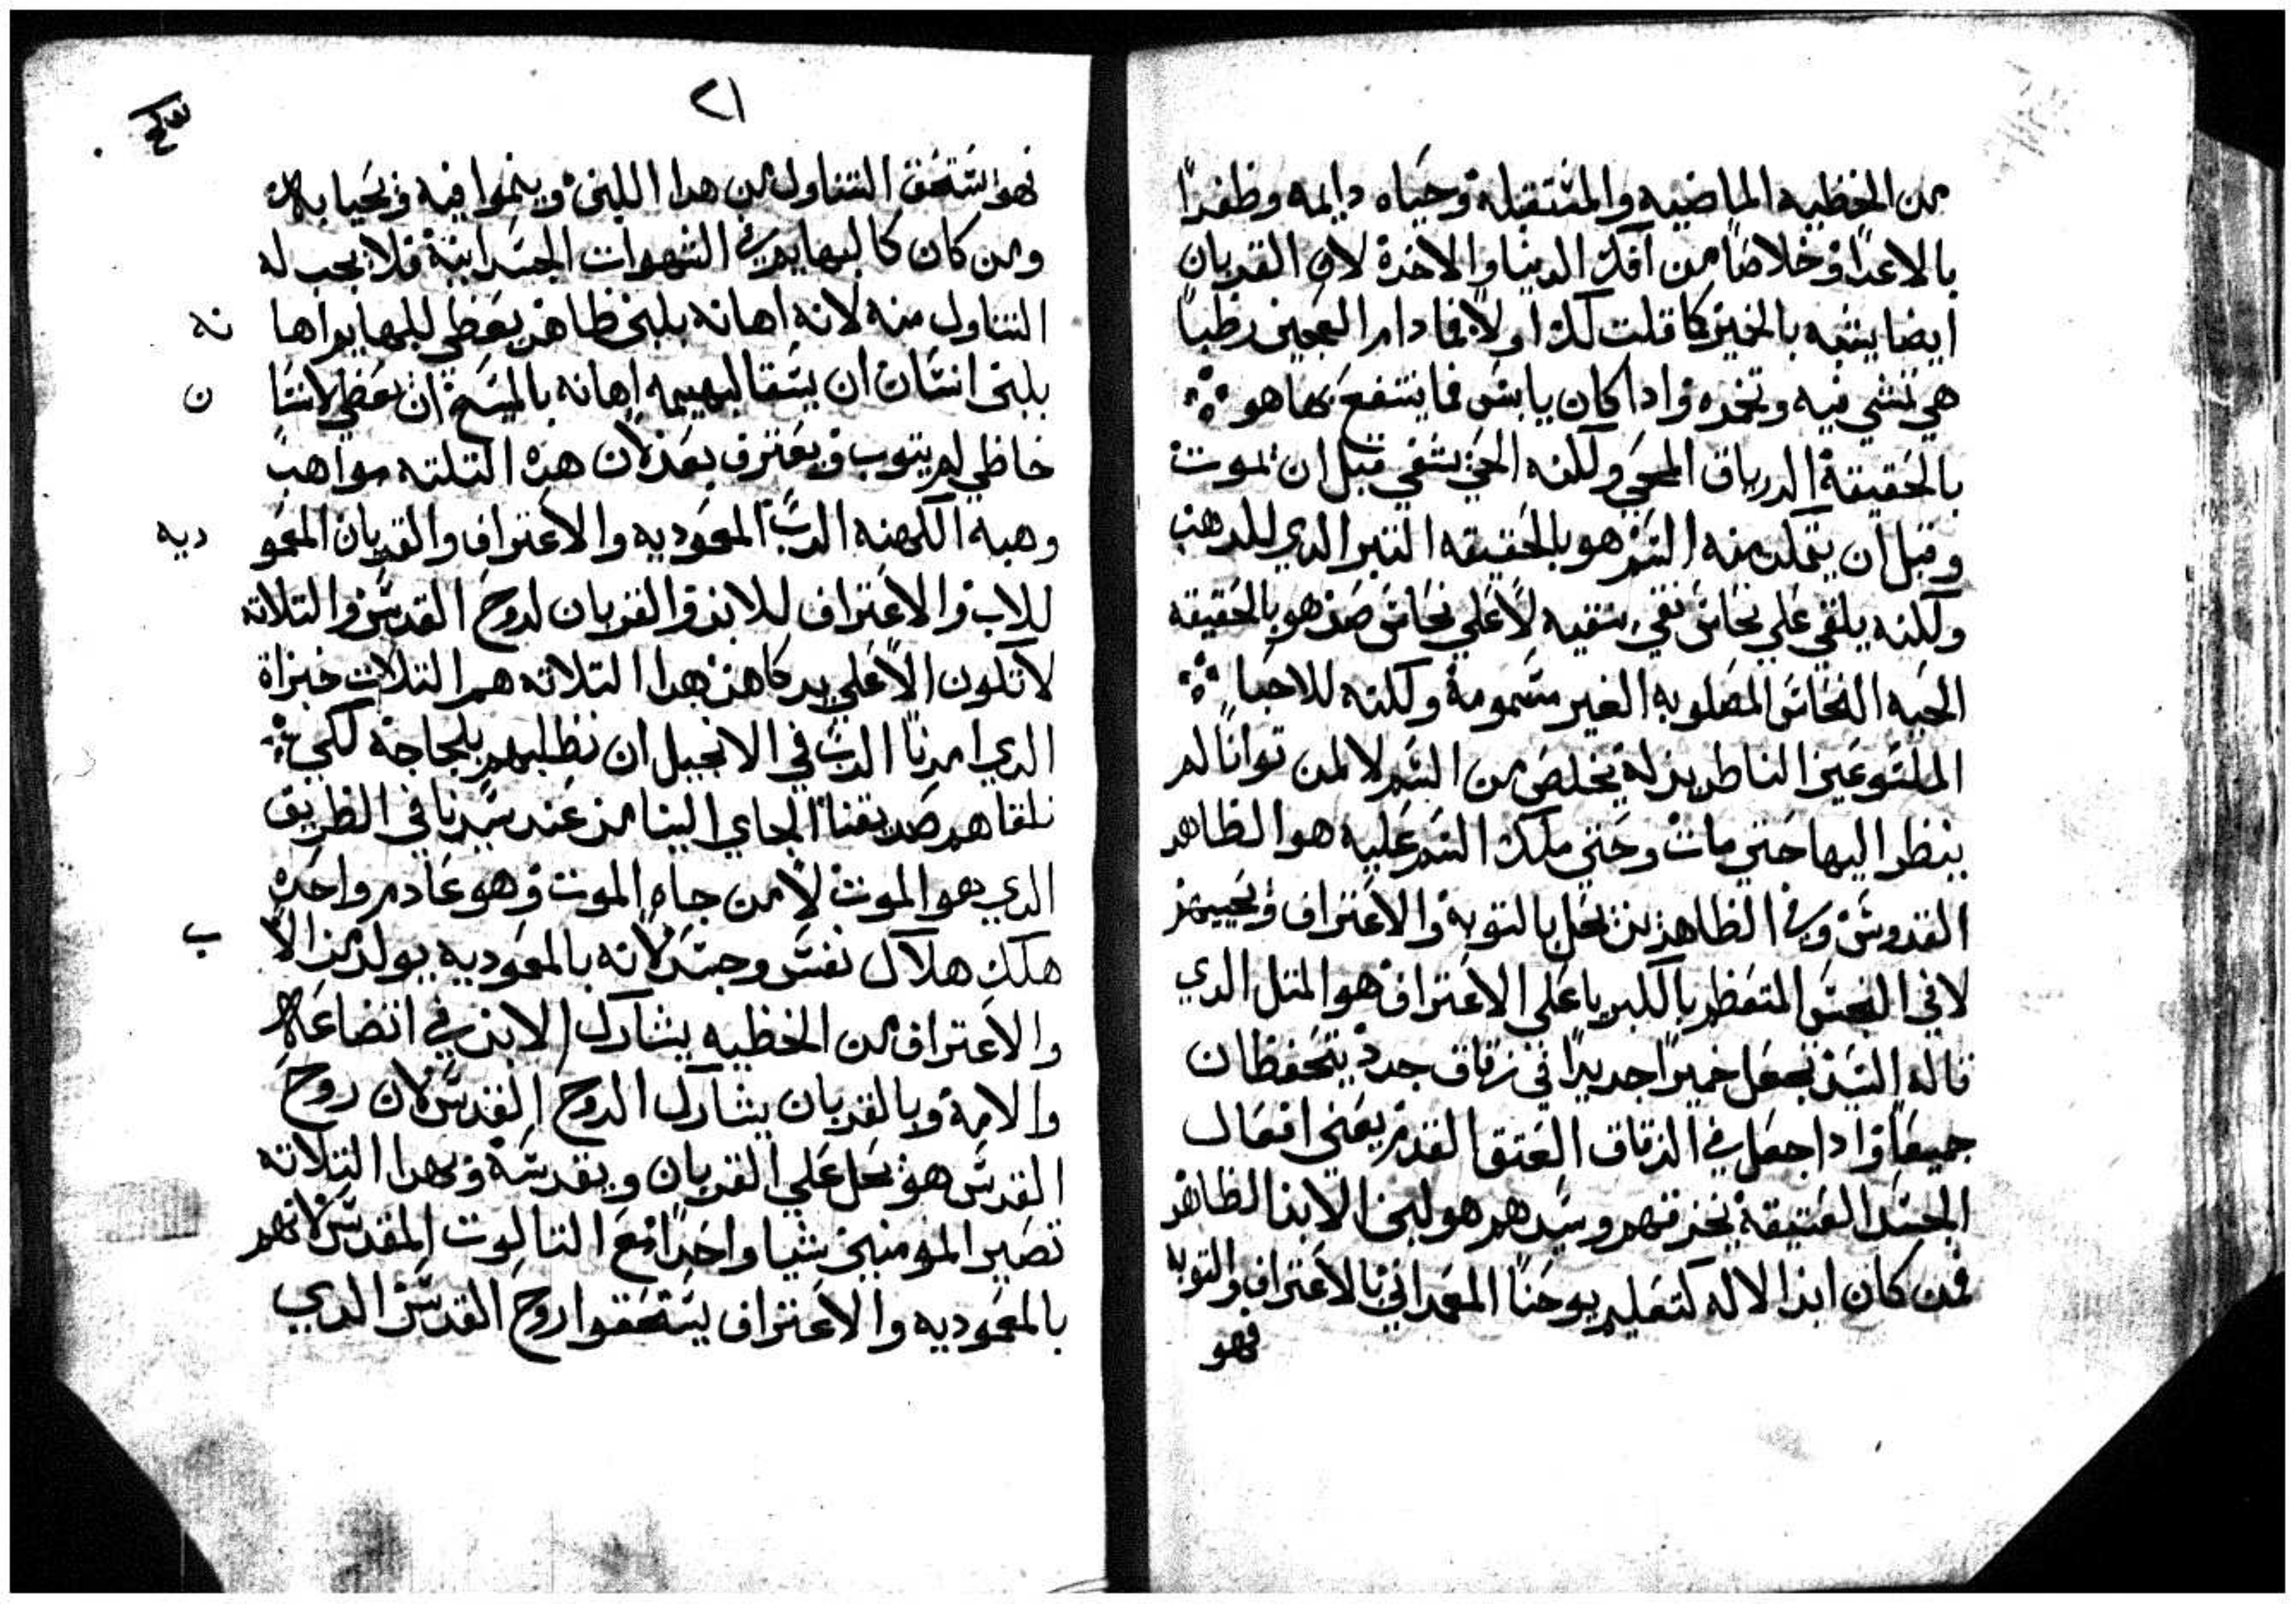 من الخطيه الماضيه والمستقبله وحياه دايمه وظفرا
بالاعدا وخلاصا من افك الدنيا والاخرة لان القربان
ايضا يشبه بالخمير كما قلت لك اولا فما دام العجين رطبا
هي تمشي فيه وتخمره واذا كان يابس فما ينتفع بها هو
بالحقيقة الدرياق المحيي ولكنه الحي يشفي قبل ان يموت
وقبل ان يتملك منه السم هو بالحقيقه التبر الذي للذهب
ولكنه يلقي علي نحاس نقي ينقيه لا علي نحاس صدي هو بالحقيقه
الحيه النحاس المصلوبه الغير مسمومة ولكنه للاحيا
الملسوعين الناطرين له تخلص من السم لا لمن توانا لم
ينظر اليها حتي مات وحتي ملك السم عليه هو الطاهر
القدوس وفي الطاهرين يحل بالتوبة والاعتراف ويحييهم
لا في النجس المتعظم بالكبريا علي الاعتراف هو المتل الدي
قاله السيد يجعل خميرا جديدا في زقاق جدد يتحفظان
جميعا وادا جعل في الزقاق العتق القدم يعني افعال
الجسد العتيقة يخرقهم وسيدهم هو لبن الابنا الطاهر
فمن كان ابن الاله كتعليم يوحنا المعمداني بالاعتراف والتوبه
فهو
٢١
فهو يستحق التناول من هدا اللبن وينموا فيه ويحيا به
ومن كان كالبهايم في الشهوات الجسدانية فلا يجب له
التناول منه لانه اهانه بلبن طاهر يعطي للبهايم اها نه
بلبن انسان ان يسقا لبهيمه اهانه بالمسيح ان يعطي لانسا ن
خاطي لم يتوب ويعترف بعد لان هده التلته مواهب
وهبه الكهنه الرب المعموديه والاعتراف والقربان المعمو ديه
للاب والاعتراف للابن والقربان لروح القدس والتلاته
لا تكون الا علي يد كاهن هدا التلاته هم التلات خبزاة
الدي امرنا الرب في الانجيل ان نطلبهم بلجاجة لكي
نلقاهم صديقنا الجاي الينا من عند سيدنا في الطريق
الدي هو الموت لا من جاه الموت وهو عادم واحده
هلك هلاك نفس وجسد لانه بالمعوديه يولد من الا ب
والاعتراف من الخطيه يشارك الابن في اتضاعه
والامة وبالقربان يشارك الروح القدس لان روح
القدس هو يحل علي القربان ويقدسة وبهدا التلاته
تصير المومنين شيا واحدا مع التالوت المقدس لانهم
بالمعموديه والاعتراف يستحقوا روح القدس الدي